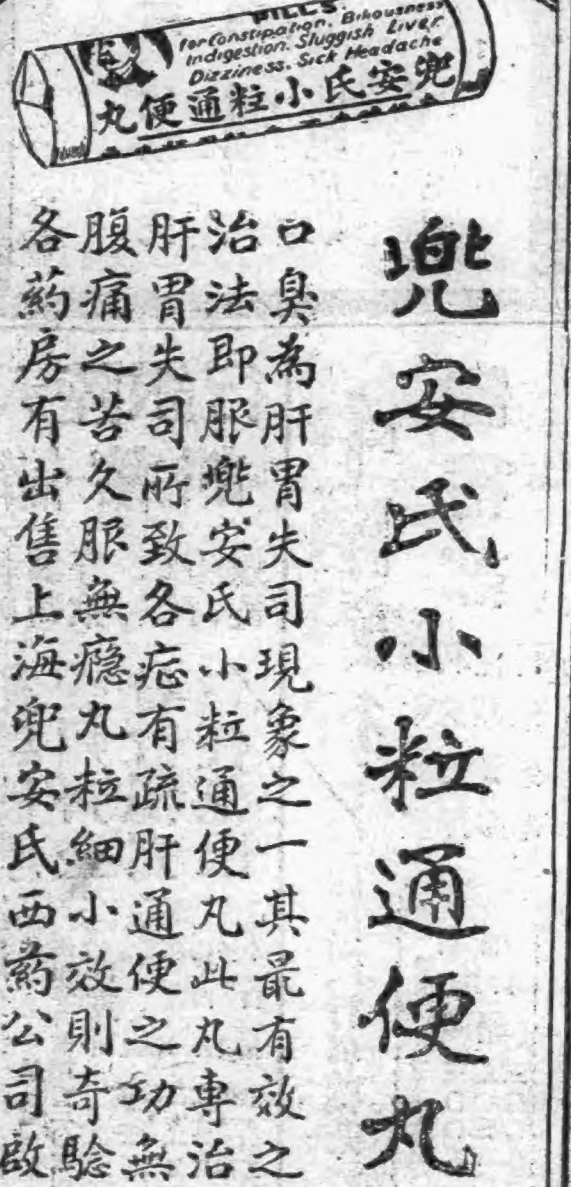 PILLS.
for Constipation. Biliousness
Indigestion. Sluggish Liver
Dizziness. Sick Headache
兜安氏小粒通便丸
兜安氏小粒通便丸
口臭為肝胃失司現象之一其最有效之
治法即服兜安氏小粒通便丸此丸專治
肝胃失司所致各症有疏肝通便之功無
腹痛之苦久服無癮丸粒細小效則奇驗
各葯房有出售上海兜安氏西葯公司啟